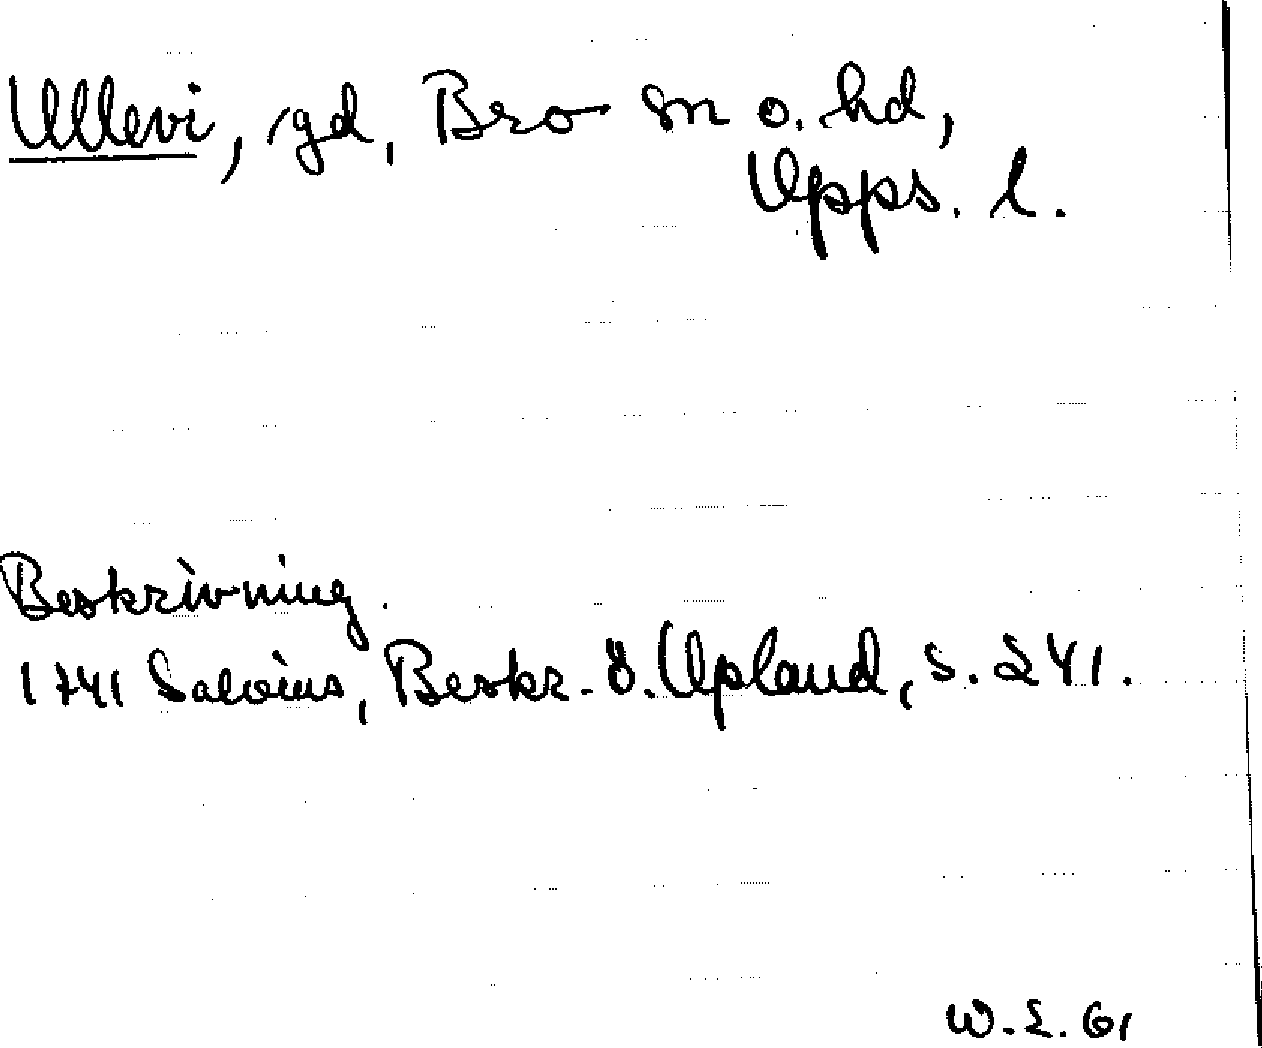 Ullevi, gd, Bro sn o. hd,
Upps. l.
Beskrivning.
1741 Salvius, Beskr. ö. Upland, s. 241.
W. L. 61